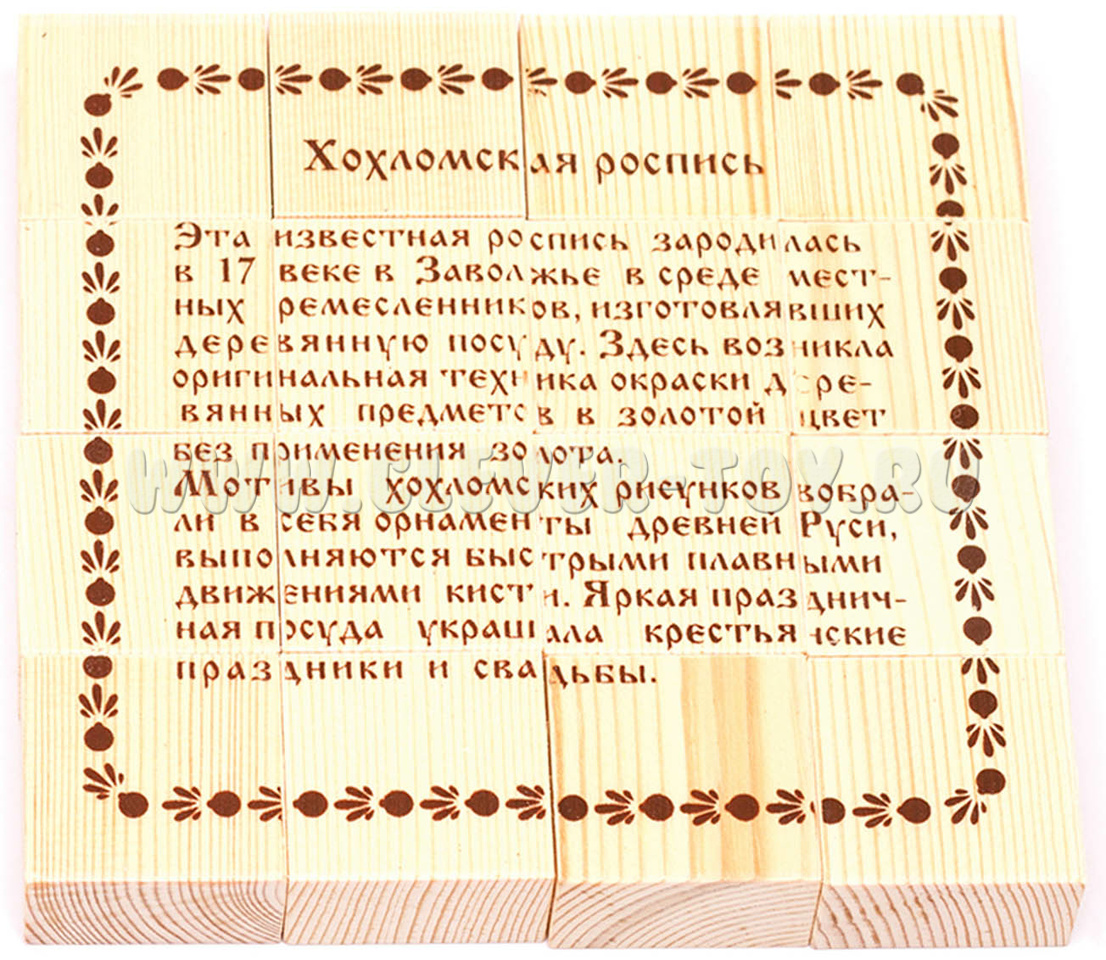 Хохломская роспись
Эта известная роспись зародилась
в 17 веке в Заволжье в среде мест-
ных ремесленников, изготовлявших
деревянную посуду. Здесь возникла
оригинальная техника окраски дере-
вянных предметов в золотой цвет
без применения золота.
WWW.CLEVER-TOY.RU
Мотивы хохломских рисунков вобра-
ли в себя орнаменты древней Руси,
выполняются быстрыми плавными
движениями кисти. Яркая празднич-
ная посуда украшала крестьянские
праздники и свадьбы.